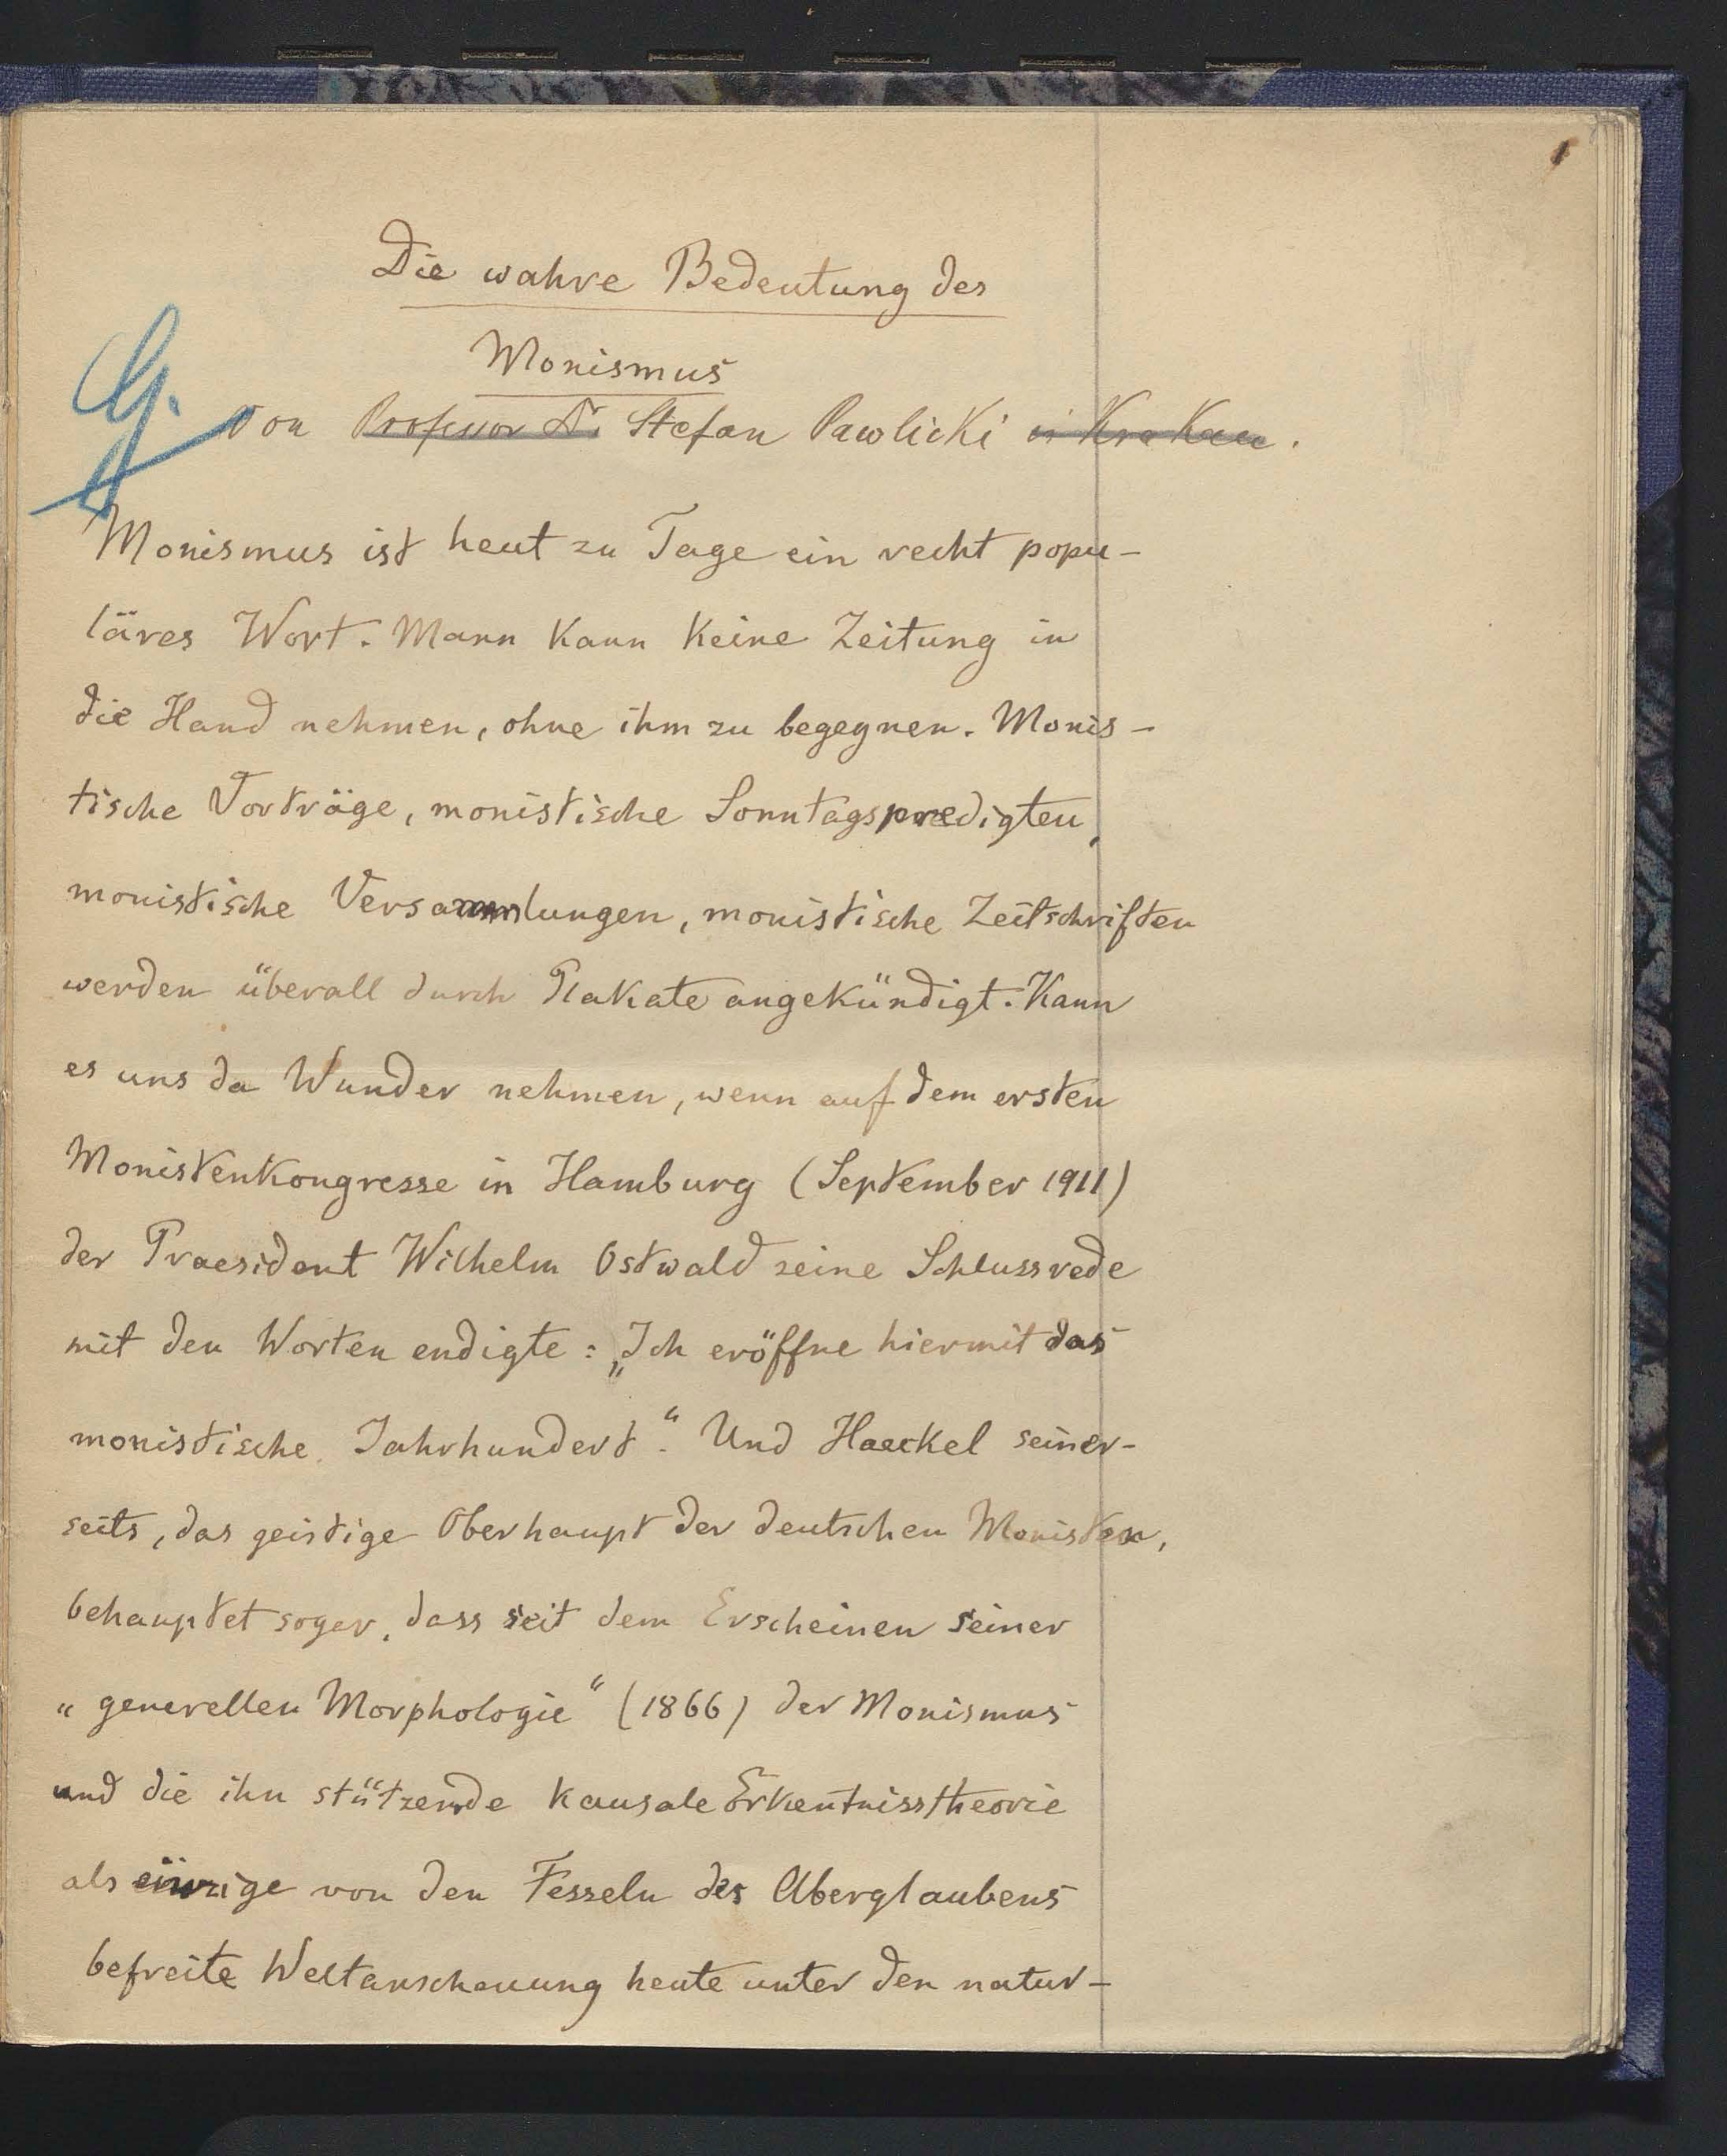 1
Die wahre Bedeutung des
Monismus
G.
von Professor Dr. Stefan Pawlicki in Krakau.
Monismus ist heut zu Tage ein recht popu-
läres Wort. Mann kann keine Zeitung in
die Hand nehmen, ohne ihm zu begegnen. Monis-
tische Vorträge, monistische Sonntagspredigten,
monistische Versammlungen, monistische Zeitschriften
werden überall durch Plakate angekündigt. Kann
es uns da Wunder nehmen, wenn auf dem ersten
Monistenkongresse in Hamburg (September 1911)
der Praesident Wilhelm Ostwald seine Schlussrede
mit den Worten endigte: „Ich eröffne hiermit das
monistische Jahrhundert“. Und Haeckel seiner-
seits, das geistige Oberhaupt der deutschen Monisten,
behauptet sogar, dass seit dem Erscheinen seiner
“generellen Morphologie“ (1866) der Monismus
und die ihn stützende kausale Erkentnisstheorie
als einzige von den Fesseln des Aberglaubens
befreite Weltanschauung heute unter den natur-